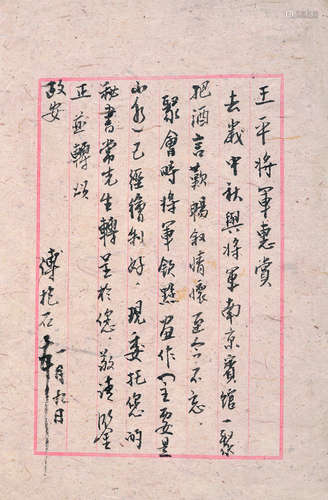 王平将軍惠赏
去歲中秋與将軍南京賓馆一聚
把酒言歡暢叙情懷至今不忘
聚會時将軍欽點画作（主要是
山水）已經繪制好，现委托您的
秘書常先生轉呈於您，敬请鉴
正並轉頌
教安
傅抱石
一月九日